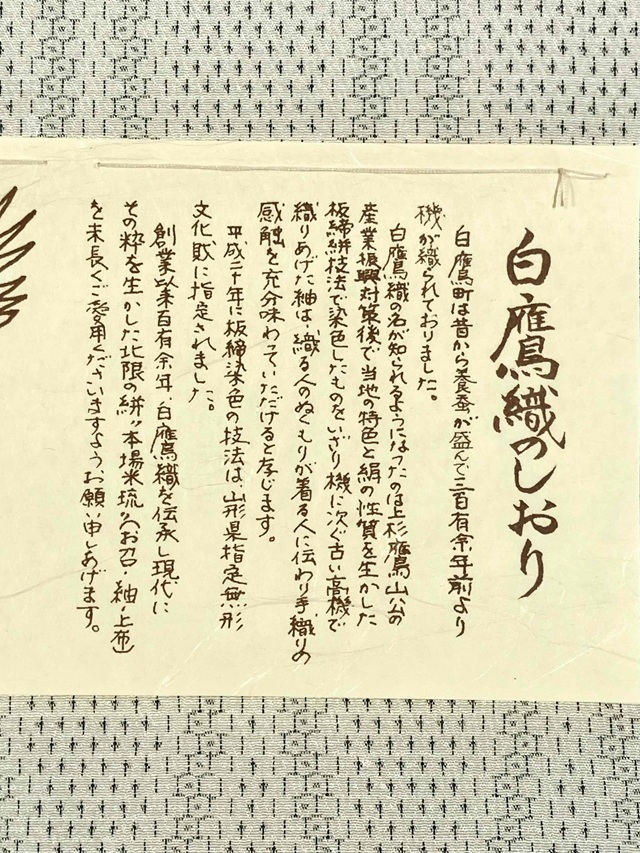 白鷹織のしおり
白鷹町は昔から養蚕が盛んで三百有余年前より
機が織られておりました。
白鷹織の名が知られるようになったのは上杉鷹山公の
産業振興対策後で当地の特色と絹の性質を生かした
板締絣技法で染色したものをいざり機に次ぐ古い高機で
織りあげた紬は、織る人のぬくもりが着る人に伝わり手織りの
感触を充分味わっていただけると存じます。
平成二十年に板締染色の技法は、山形県指定無形
文化財に指定されました。
創業以来百有余年、白鷹織を伝承し現代に
その粋を生かした北限の絣〃本場米琉〃(お召・紬・上布)
を末長くご愛用くださいますようお願い申しあげます。